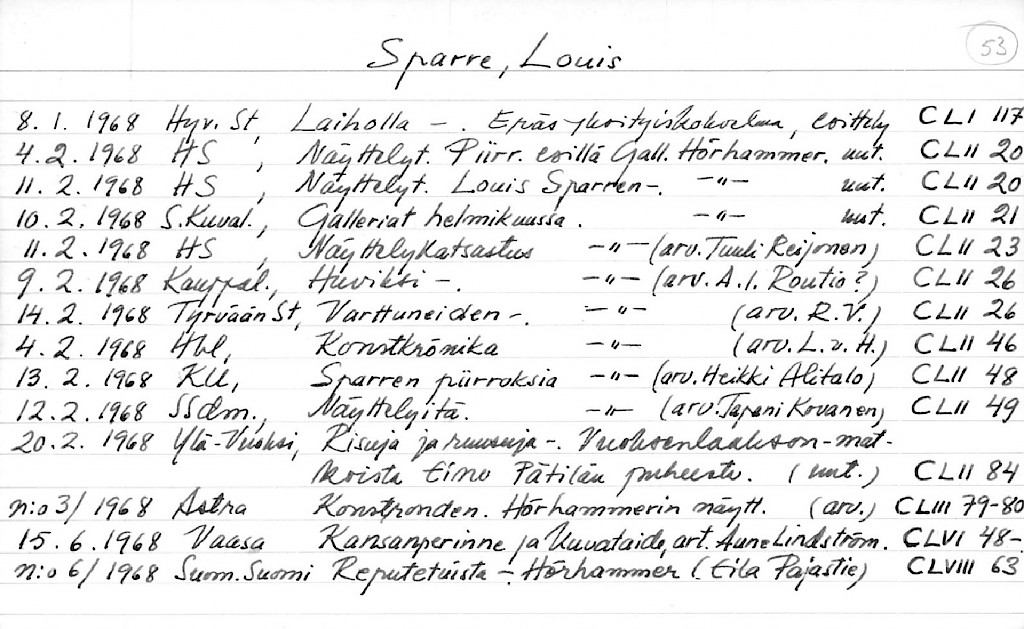 53
Sparre, Louis
8.1.1968 Hyv.St, Laiholla -. Eräs yksityiskokoelma, esittely CLI 117
4.2.1968 HS, Näyttelyt. Piirr. esillä Gall. Hörhammer. uut. CLII 20
11.2.1968 HS, Näyttelyt. Louis Sparren-. -"- uut. CLII 20
10.2.1968 S.Kuval., Galleriat helmikuussa. -"- uut. CLII 21
11.2.1968 HS, Näyttelykatsastus -"- (arv. Tuuli Reijonen) CLII 23
9.2.1968 Kauppal., Huviksi -. -"- (arv. A.I. Routio?) CLII 26
14.2.1968 Tyrvään St, Varttuneiden -. -"- (arv. R.V.) CLII 26
4.2.1968 Hbl, Konstkrönika -"- (arv. L.v.H.) CLII 46
13.2.1968 KU, Sparren piirroksia -"- (arv. Heikki Alitalo) CLII 48
12.2.1968 SSdm., Näyttelyitä. -"- (arv. Tapani Kovanen) CLII 49
20.2.1968 Ylä-Vuoksi, Risuja ja ruusuja -. Vuoksenlaakson-mat-
koista Eino Pätilän puheesta. (uut.) CLII 84
n:o 3/1968 Astra Konstronden. Hörhammerin näytt. (arv.) CLIII 79-80
15.6.1968 Vaasa Kansanperinne ja kuvataide, art. Aune Lindström. CLVI 48-
n:o 6/1968 Suom. Suomi Reputetuista -. Hörhammer (Eila Pajastie) CLVIII 63